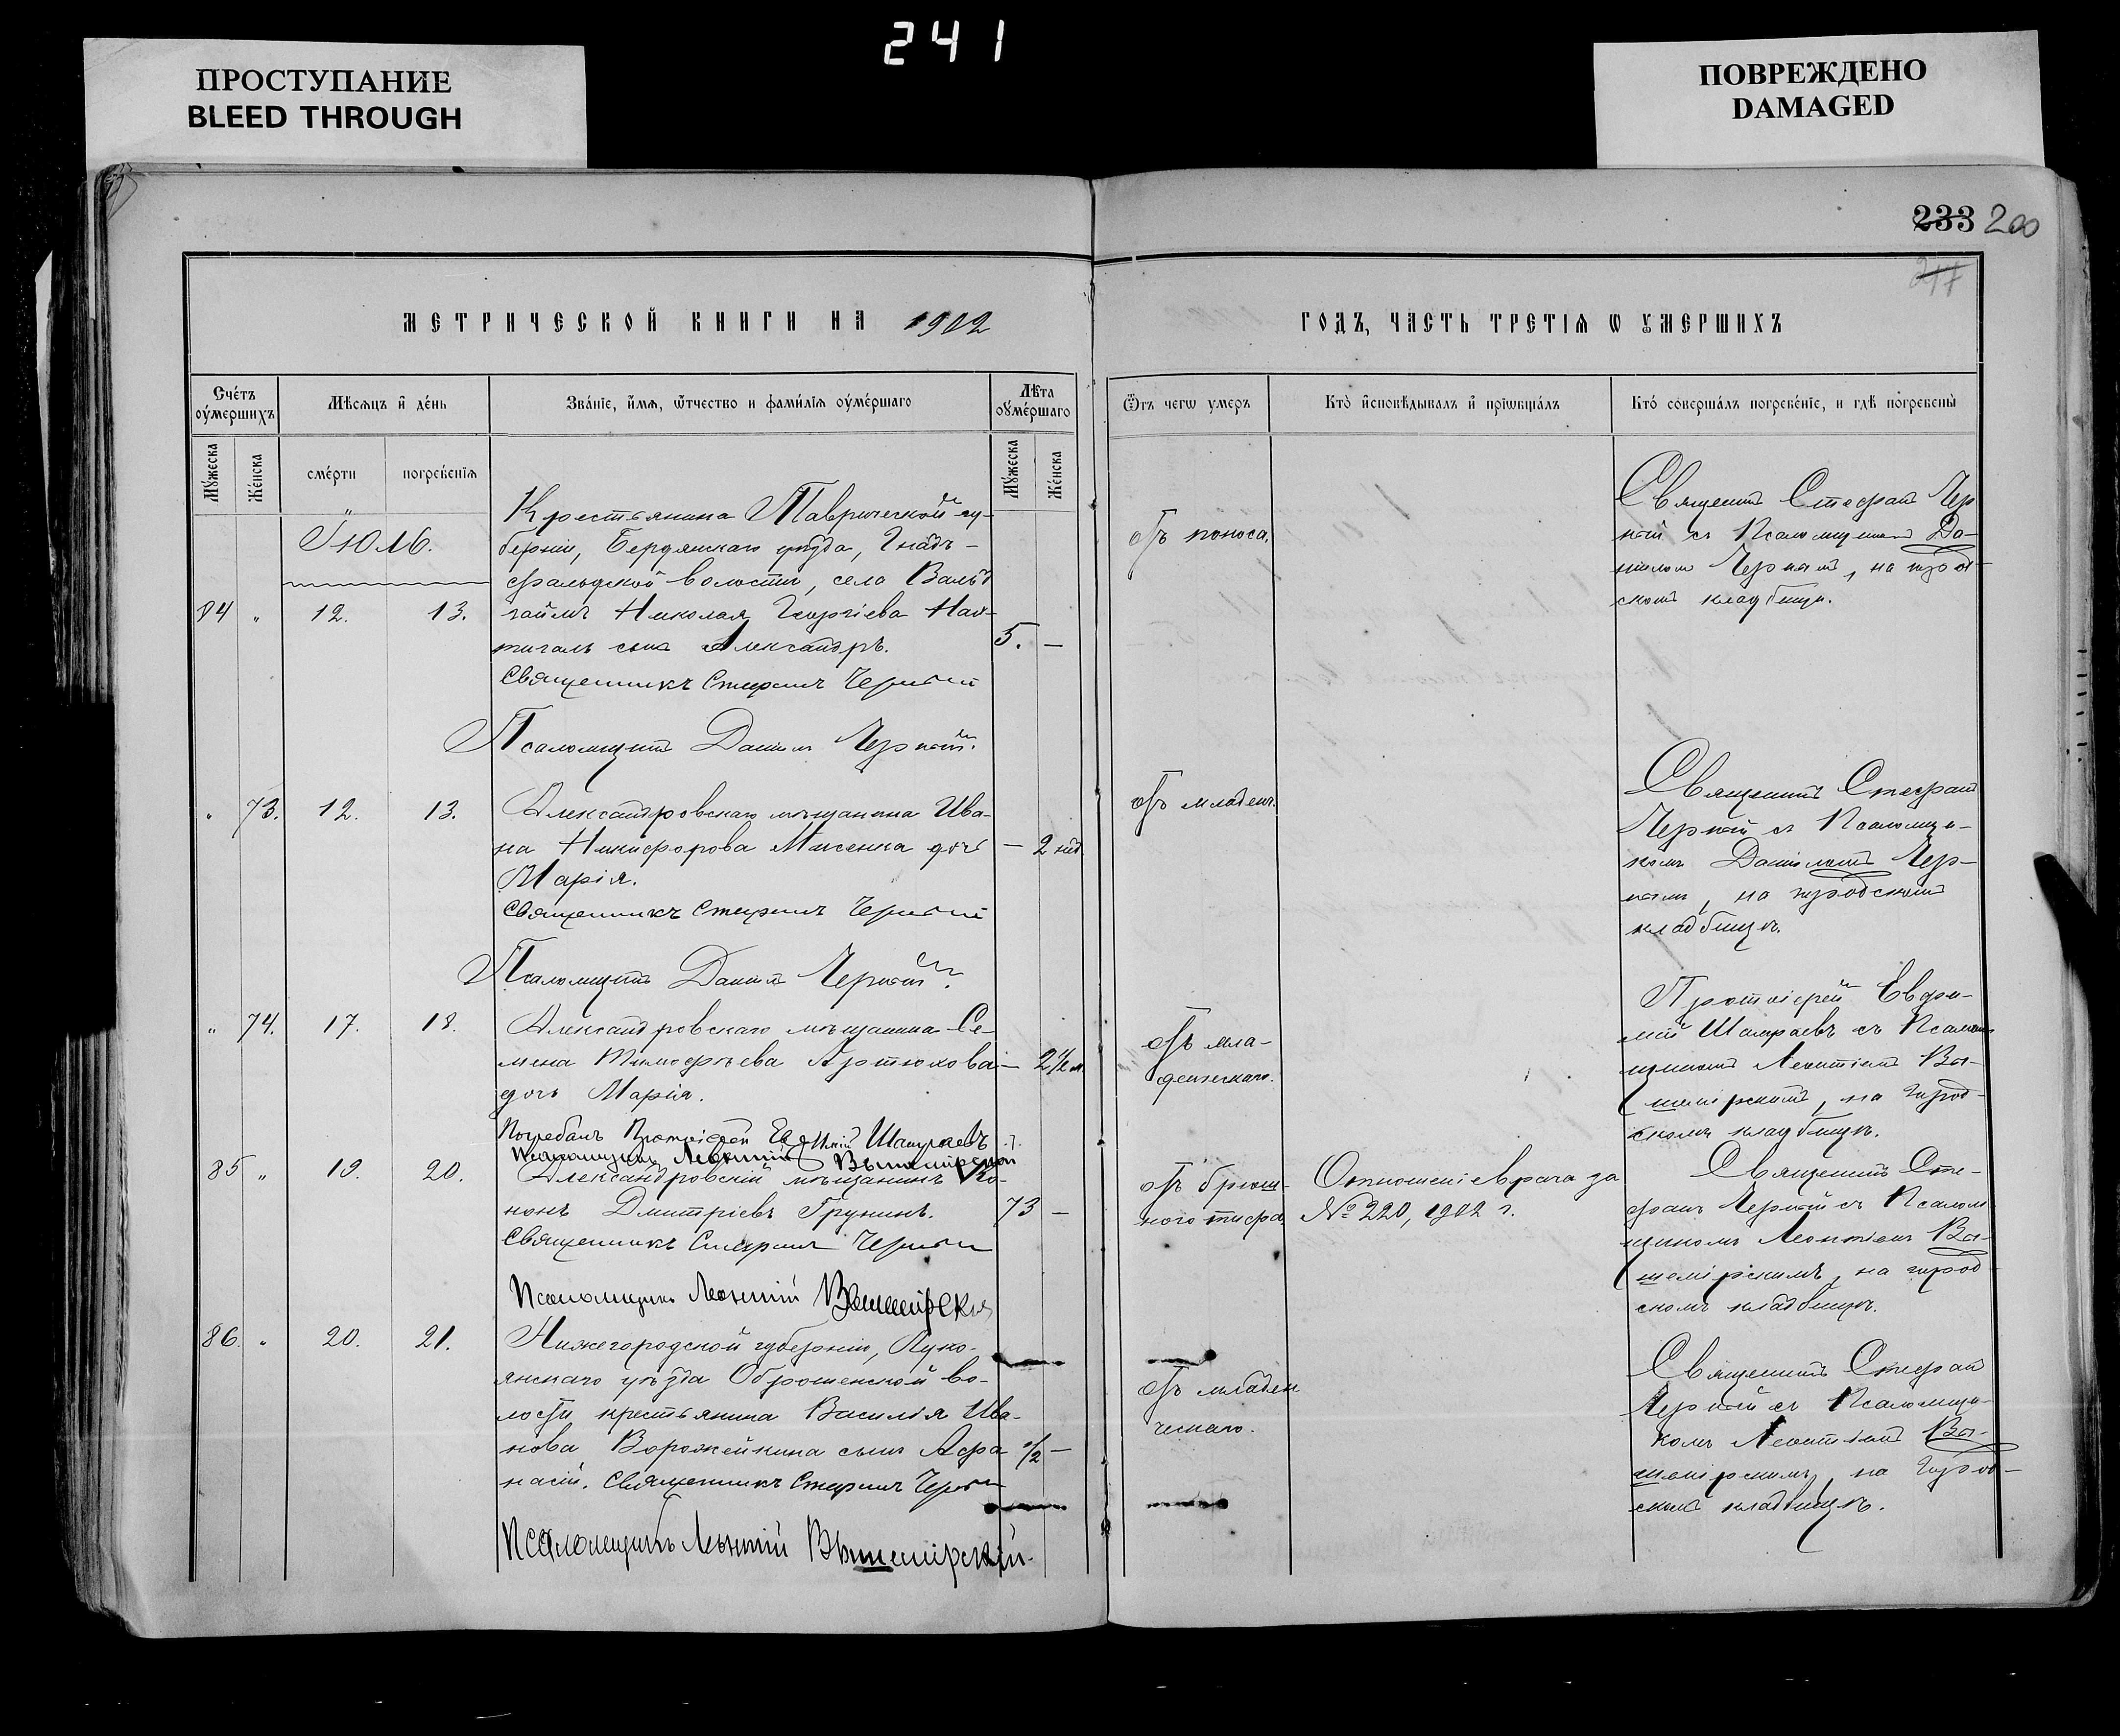 241
ПРОСТУПАНИЕ
BLEED THROUGH
ПОВРЕЖДЕНО
DAMAGED
233 200
217
МЕТРИЧЕСКОЙ КНИГИ НА 1902
ГОДЪ, ЧАСТЬ ТРЕТІѦ Ѡ ОУМЕРШИХЪ
Счéтъ оу́мершихъ
Мѣсяцъ и҆ дéнь
Звáніе, и҆́мя, ѻ҆́тчество и фамúлія оу҆мéршаго
Лѣ́та оу҆мéршаго
Ѿъ чегѡ умеръ
Ктò и҆сповѣ́дывалъ и҆ прїѡбщáлъ
Ктó совершáлъ погребéніе, и гдѣ̀ погребены̀
Мꙋ́жеска
Жéнска
смéрти
погребéнїѧ
Мꙋ́жеска
Жéнска
Іюль.
Крестьянина Таврической гу-
бернiи, Бердянскаго уѣзда, Гнаден-
фельдской волости, села Вальд-
84 " 12. 13. гаймъ Николая Георгіева Нах-
тигаль сынъ Александръ. 5. —
Священникъ Стефанъ Черный
Псаломщикъ Даніилъ Черный.
отъ поноса.
Священникъ Стефанъ Чер
ный съ Псаломщикомъ Да-
ніиломъ Чернымъ, на город-
скомъ кладбищѣ.
" 73. 12. 13. Александровскаго мѣщанина Ива-
на Никифорова Мисенка дочь — 2 нед
Марія.
Священникъ Стефанъ Черный
Псаломщикъ Даніилъ Черный.
отъ младен.
Священникъ Стефанъ
Черный съ Псаломщи-
комъ Даніиломъ Чер-
нымъ, на городскомъ
кладбищѣ.
" 74. 17. 18. Александровскаго мѣщанина Се-
мена Тимофѣева Артюхова — 2½ м.
дочь Марія.
Погребалъ Протоіерей Евфимій Шамраевъ
Псаломщикъ Леонтій Вышемірский
отъ мла-
денческаго.
Протоіерей Евфи-
мій Шамраевъ съ Псалом-
щикомъ Леонтіемъ Вы-
шемірскимъ, на город-
скомъ кладбищѣ.
85 " 19. 20. Александровскій мѣщанинъ Ко-
нонъ Дмитріевъ Грунинъ. 73 —
Священникъ Стефанъ Черный
Псаломщикъ Леонтій Вышемірскій
отъ брюш-
ного тифа
Отношеніе врача за
№ 220, 1902 г.
Священникъ Сте-
фанъ Черный съ Псалом-
щикомъ Леонтіемъ Вы-
шемірскимъ, на город
скомъ кладбищѣ.
86. " 20. 21. Нижегородской губерніи, Луко-
янскаго уѣзда Оброченской во-
лости крестьянина Василія Ива-
нова Ворожейкина сынъ Афа ½ —
насій. Священникъ Стефанъ Черный
Псаломщикъ Леонтій Вышемірскій.
отъ младен
ческаго.
Священникъ Стефанъ
Черный съ Псаломщи-
комъ Леонтіемъ Вы-
шемірскимъ, на город-
скомъ кладбищѣ.